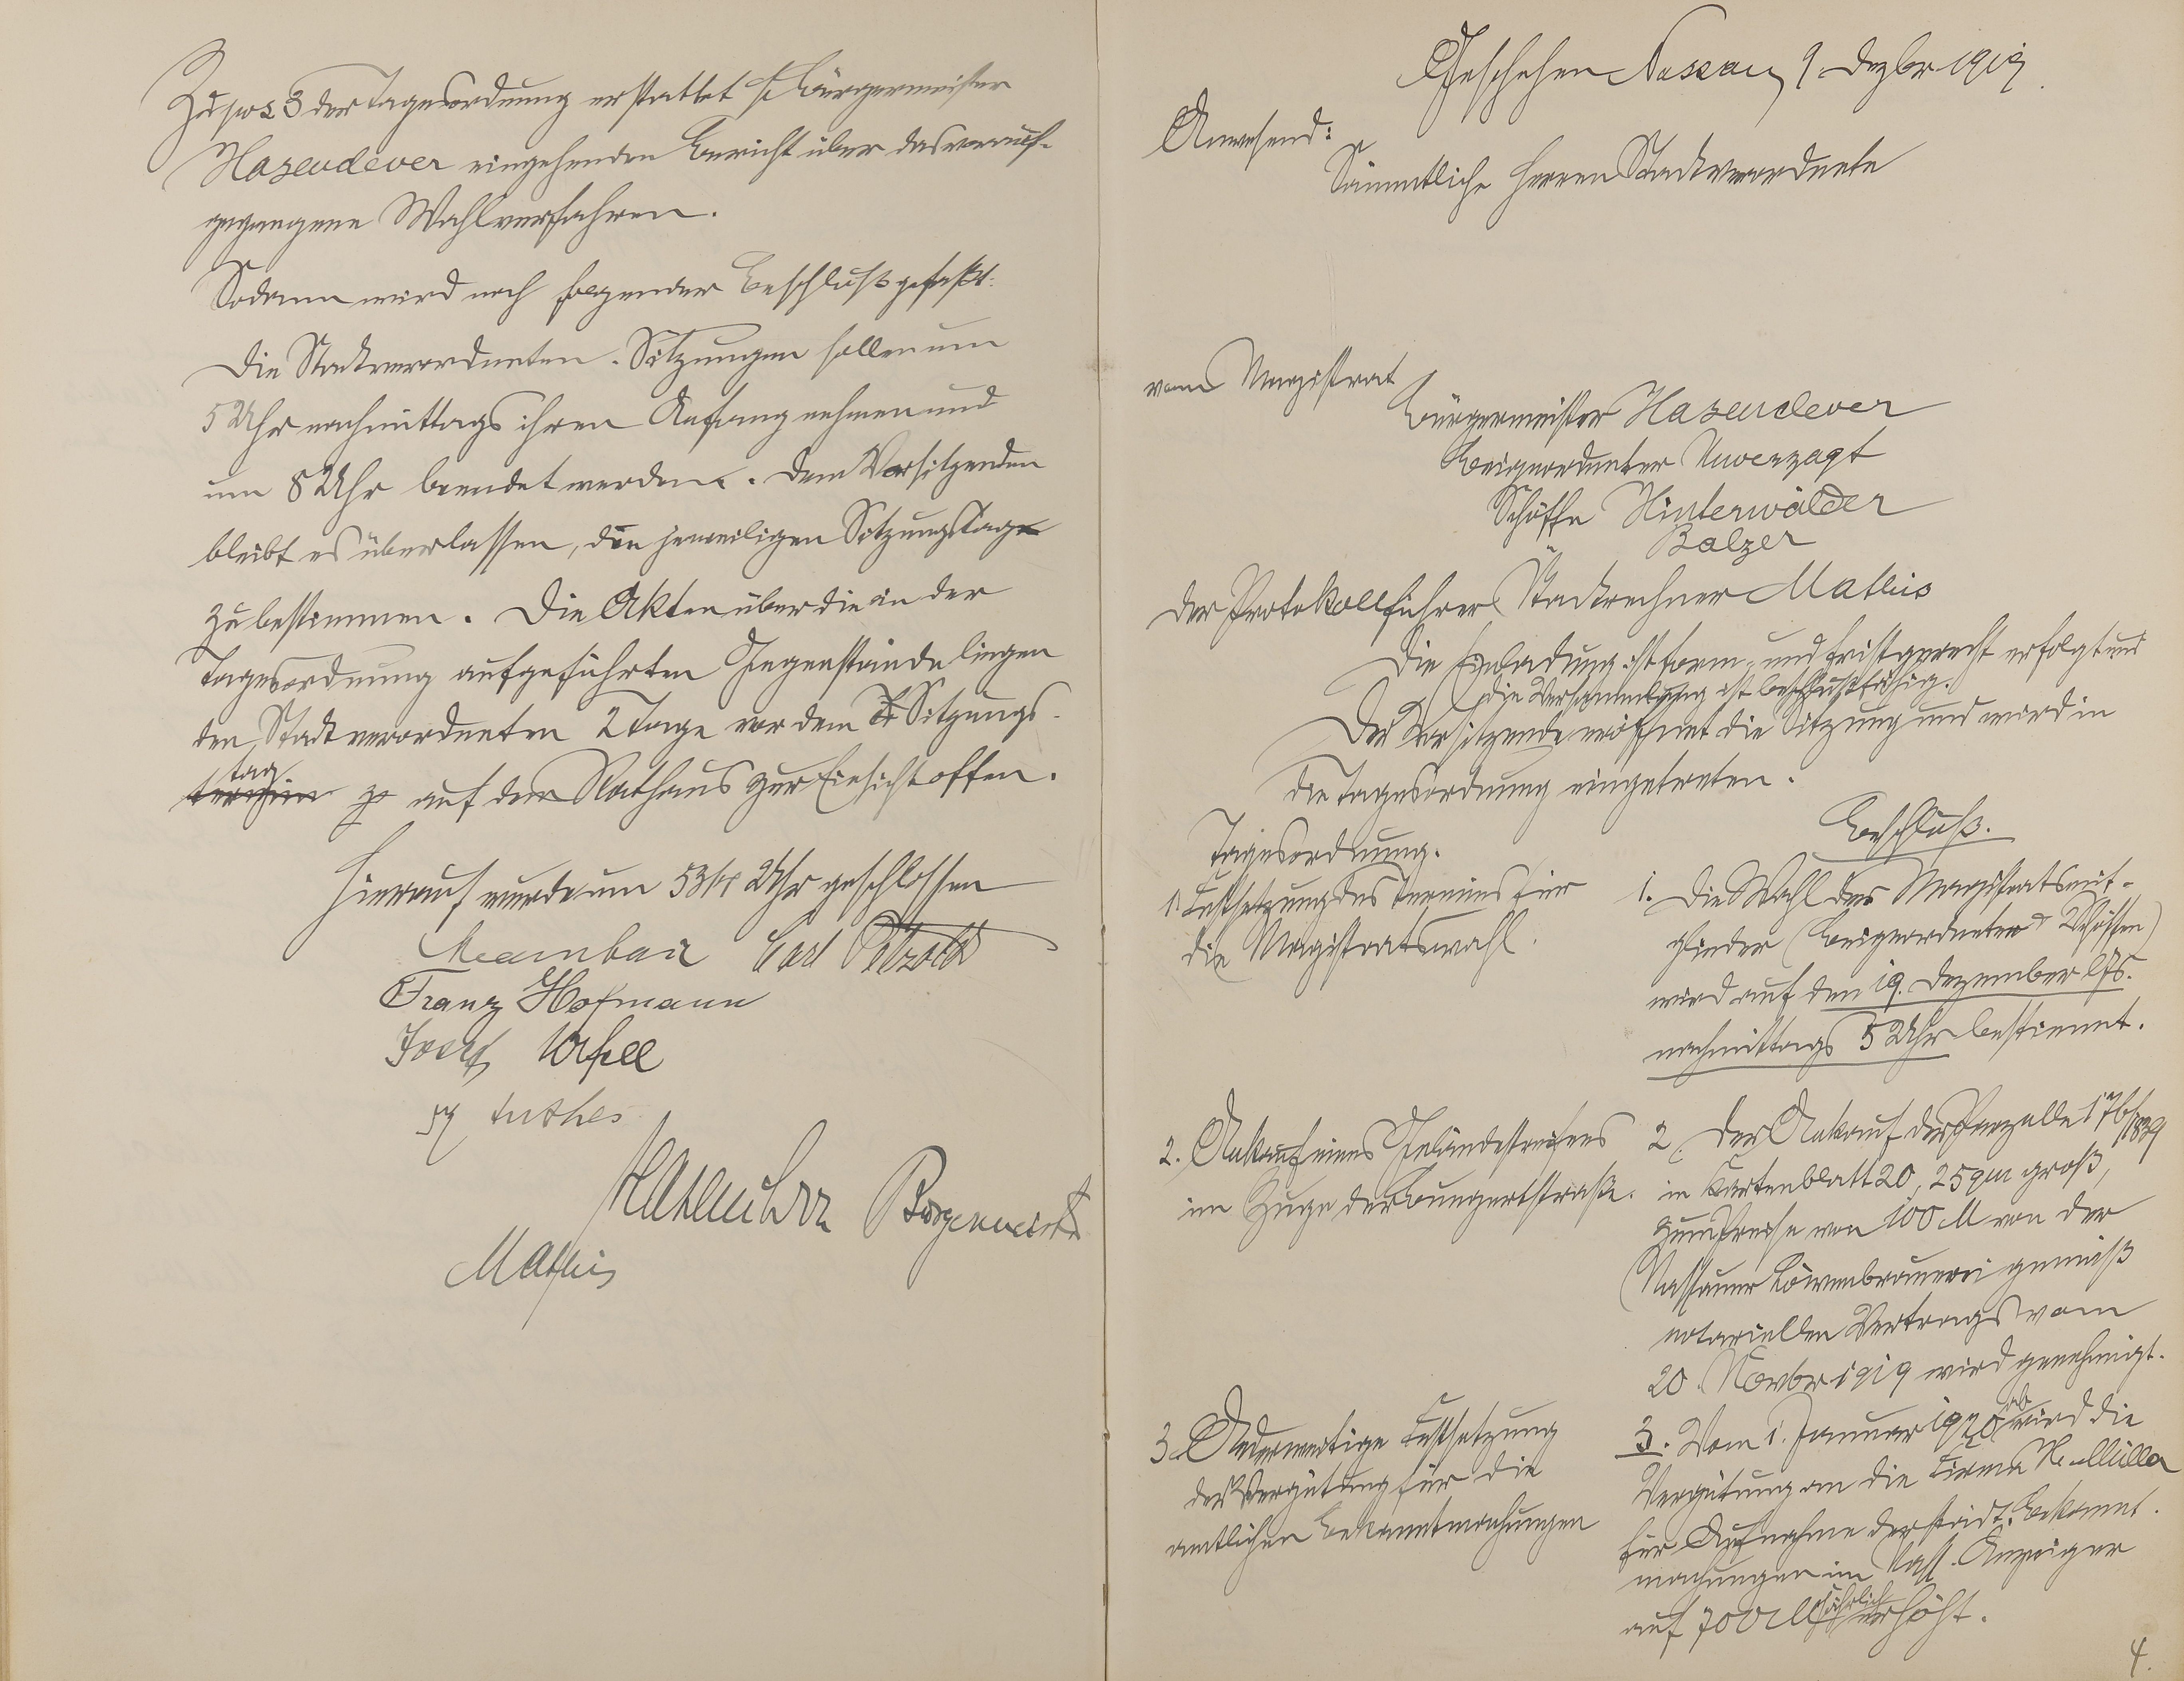 Zu pos 3 der Tagesordnung erstattet H. Bürgermeister
Hasenclever eingehenden Bericht über das vorauf-
gegangene Wahlverfahren.
Sodann wird noch folgender Beschluß gefaßt:
Die Stadtverordneten-Sitzungen sollen um
5 Uhr nachmittags ihren Anfang nehmen und
um 8 Uhr beendet werden. Dem Vorsitzenden
bleibt es überlassen, die jeweiligen Sitzungstage
zu bestimmen. Die Akten über die in der
Tagesordnung aufgeführten Gegenstände liegen
den Stadtverordneten 2 Tage vor dem Sitzungs-
tag
termin auf dem Rathaus zur Einsicht offen.
Hierauf wurde um 5 3/4 Uhr geschlossen
Carl Petzold
Franz Hofmann
Josef
Hasenclever Bürgermeister
Mathis
Geschehen Nassau, 9. Dezbr 1919.
Anwesend:
Sämmtliche Herren Stadtverordnete
vom Magistrat
Bürgermeister Hasenclever
Beigeordneter Unverzagt
Schöffe Hinterwälder
" Balzer
Der Protokollführer Stadtrechner Mathis
Die Einladung ist form- und fristgerecht erfolgt und
die Versammlung ist beschlußfähig.
Der Vorsitzende eröffnet die Sitzung und wird in
die Tagesordnung eingetreten.
Tagesordnung.
Beschluß.
1. Festsetzung des Termins für
die Magistratswahl.
1. Die Wahl der Magistratsmit-
glieder (Beigeordneter u Schöffen)
wird auf den 19. Dezember lfs.
nachmittags 5 Uhr bestimmt.
2. Ankauf eines Geländestreifens
im Zuge der Bungertstraße.
2. Der Ankauf der Parzelle 176/1839
in Kartenblatt 20, 25 qm groß,
zum Preise von 100 M von der
Nassauer Löwenbrauerei gemäß
notariellen Vertrags vom
20. Novbr 1919 wird genehmigt.
3. Anderweitige Festsetzung
der Vergütung für die
amtlichen Bekanntmachungen
3. Vom 1. Januar 1920 ab wird die
Vergütung an die Firma H. Müller
für Aufnahme der städt. Bekannt-
machungen im Nass. Anzeiger
auf 700 M jährlich erhöht.
4.